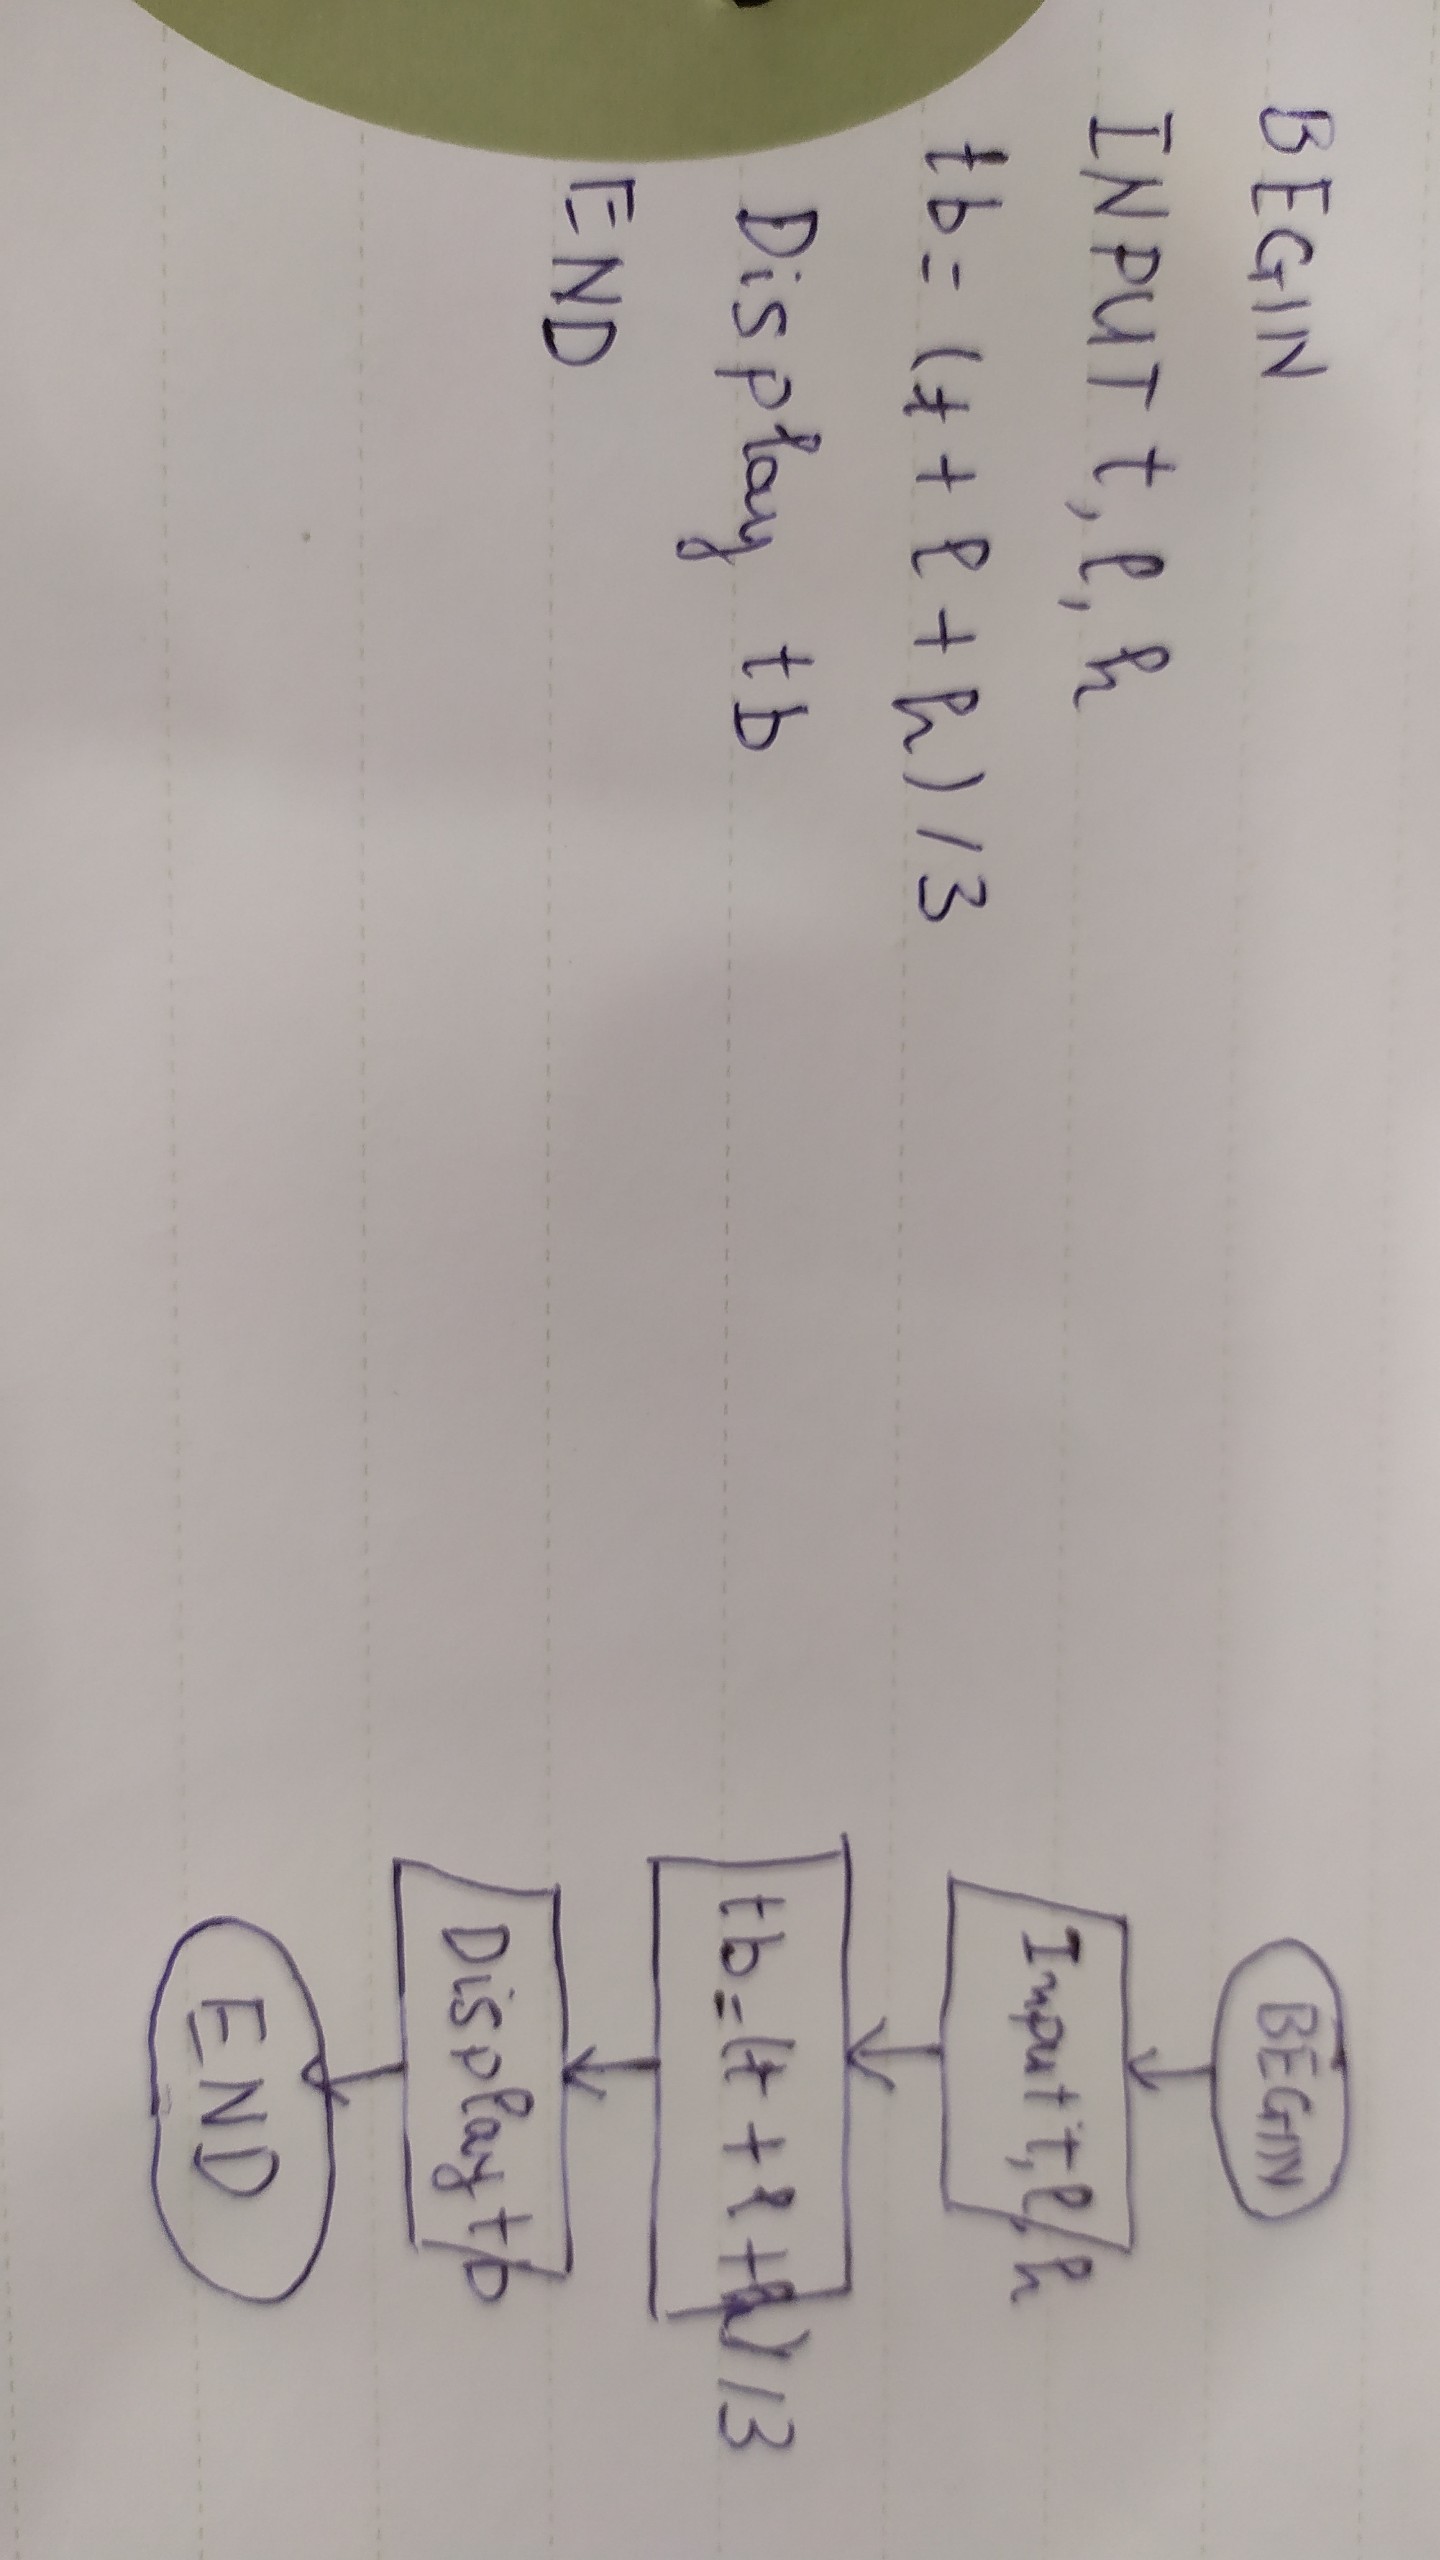 BEGIN
INPUT t, l, h
tb = (t + l + h) / 3
Display tb
END
BEGIN
Input t, l, h
tb = (t + l + h) / 3
Display tb
END